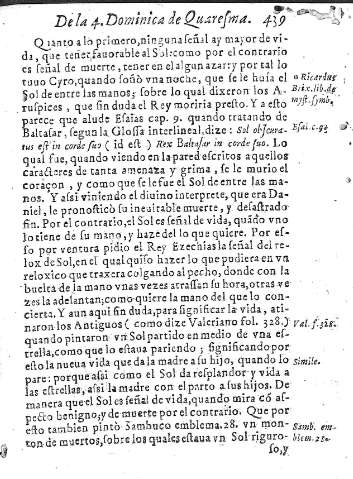 De la 4. Dominica de Quaresma. 439
Quanto a lo primero, ninguna señal ay mayor de vi-
da, que tener fauorable al Sol: como por el contrario
es señal de muerte, tener en el algun azar: y por tal lo
tuuo Cyro, quando soñò vna noche, que se le huìa el
Sol de entre las manos; sobre lo qual dixeron los A-
ruspices, que sin duda el Rey moriria presto. Y a esto
parece que alude Esaias cap. 9. quando tratando de
Baltasar, segun la Glossa interlineal, dize: Sol obscura-
tus est in corde suo (id est) Rex Baltasar in corde suo. Lo
qual fue, quando viendo en la pared escritos aquellos
caracteres de tanta amenaza y grima, se le murio el
coraçon, y como que se le fue el Sol de entre las ma-
nos. Y assi viniendo el diuino interprete, que era Da-
niel, le pronosticò su ineuitable muerte, y desastrado
fin. Por el contrario, el Sol es señal de vida, quãdo vno
lo tiene de su mano, y haze del lo que quiere. Por es-
so por ventura pidio el Rey Ezechias la señal del re-
lox de Sol, en el qual quiso hazer lo que pudiera en vn
reloxico que traxera colgando al pecho, donde con la
buelta de la mano vnas vezes atrassan su hora, otras ve
zes la adelantan; como quiere la mano del que lo con-
cierta. Y aun aqui sin duda, para significar la vida, ati-
naron los Antiguos (como dize Valeriano fol. 328.)
quando pintaron vn Sol partido en medio de vna es-
trella, como que lo estaua pariendo; significando por
esto la nueua vida que da la madre a su hijo, quando lo
pare: porque assi como el Sol da resplandor y vida a
las estrellas, assi la madre con el parto a sus hijos. De
manera que el Sol es señal de vida, quando mira cõ as-
pecto benigno; y de muerte por el contrario. Que por
esto tambien pintò Zambuco emblema. 28. vn mon-
ton de muertos, sobre los quales estaua vn Sol riguro-
so, y
a Ricardus
Brix. lib. de
myst. symb.
Esai. c. 9.
Val. f. 328.
Simile.
Samb. em-
blem. 28.